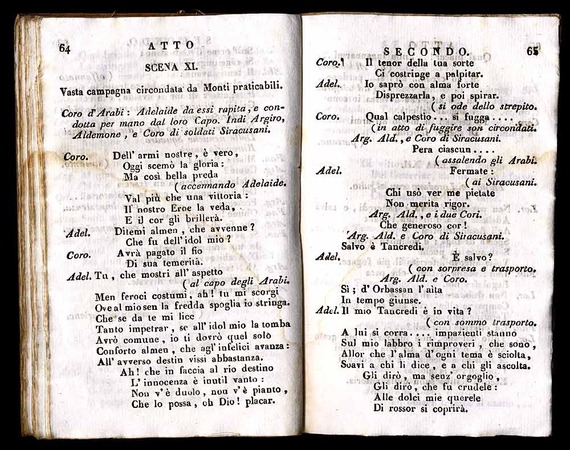 64
ATTO
SCENA XI.
Vasta campagna circondata da Monti praticabili.
Coro d'Arabi: Adelaide da essi rapita, e con-
dotta per mano dal loro Capo. Indi Argiro,
Aldemone, e Coro di soldati Siracusani.
Coro. Dell' armi nostre, è vero,
Oggi scemò la gloria:
Ma così bella preda
(accennando Adelaide.
Val più che una vittoria:
Il nostro Eroe la veda,
E il cor gli brillerà.
Adel. Ditemi almen, che avvenne?
Che fu dell'idol mio?
Coro. Avrà pagato il fio
Di sua temerità.
Adel. Tu, che mostri all' aspetto
(al capo degli Arabi.
Men feroci costumi, ah! tu mi scorgi
Ove al mio sen la fredda spoglia io stringa.
Che se da te mi lice
Tanto impetrar, se all' idol mio la tomba
Avrò comune, io ti dovrò quel solo
Conforto almen, che agl'infelici avanza:
All' avverso destin vissi abbastanza.
Ah! che in faccia al rio destino
L' innocenza è inutil vanto:
Non v'è duolo, non v'è pianto,
Che lo possa, oh Dio! placar.
SECONDO.
65
Coro. Il tenor della tua sorte
Ci costringe a palpitar.
Adel. Io saprò con alma forte
Disprezzarla, e poi spirar.
(si ode dello strepito.
Coro. Qual calpestio... si fugga....
(in atto di fuggire son circondati.
Arg. Ald., e Coro di Siracusani.
Pera ciascun....
(assalendo gli Arabi.
Adel. Fermate:
(ai Siracusani.
Chi usò ver me pietate
Non merita rigor.
Arg. Ald., e i due Cori.
Che generoso cor!
Arg. Ald. e Coro di Siracusani.
Salvo è Tancredi.
Adel. È salvo?
(con sorpresa e trasporto.
Arg. Ald. e Coro.
Sì; d' Orbassan l'aita
In tempo giunse.
Adel. Il mio Tancredi è in vita?
(con sommo trasporto.
A lui si corra... impazienti stanno
Sul mio labbro i rimproveri, che sono,
Allor che l'alma d'ogni tema è sciolta,
Suavi a chi li dice, e a chi gli ascolta.
Gli dirò, ma senz' orgoglio,
Gli dirò, che fu crudele:
Alle dolci mie querele
Di rossor si coprirà.